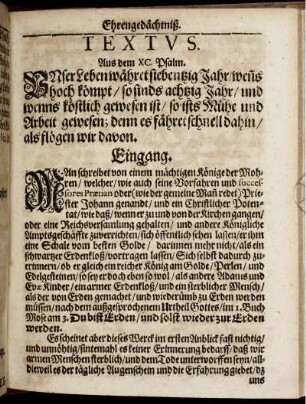 Ehrengedächtniß.
TEXTVS.
Aus dem XC. Psalm.
UNser Leben währet siebentzig Jahr/ wenns
hoch kömpt/ so sinds achtzig Jahr/ und
wenns köstlich gewesen ist/ so ists Mühe und
Arbeit gewesen; denn es fähret schnell dahin/
als flögen wir davon.
Eingang.
MAn schreibet von einem mächtigen Könige der Moh-
ren/ welcher/ wie auch seine Vorfahren und succes-
sores Prætian oder (wie der gemeine Mañ redet) Prie-
ster Johann genandt/ und ein Christlicher Poten-
tat/ wie daß/ wenn er zu und von der Kirchen gangen/
oder eine Reichsversamlung gehalten/ und andere Königliche
Amptsgeschäffte zuverrichten/ sich öffentlich sehen lassen/ er ihm
eine Schale vom besten Golde/ darinnen mehr nicht/ als ein
schwartzer Erdenkloß/ vortragen lassen/ Sich selbst dadurch zu-
erinnern/ ob er gleich ein reicher König am Golde/ Perlen/ und
Edelgesteinen/ so sey er doch eben so wol/ als andere Adams und
Evæ Kinder/ ein armer Erdenkloß/ und ein sterblicher Mensch/
als der von Erden gemachet/ und wiederümb zu Erden werden
müssen/ nach dem außgesprochenem Urtheil Gottes/ im 1. Buch
Mose am 3. Du bist Erden/ und solst wieder zur Erden
werden.
Es scheinet aber dieses Werck im ersten Anblick fast nichtig/
und unnöthig/ sintemahl es keiner Erinnerung bedarff/ daß wir
armen Menschen sterblich/ und dem Tode unterworffen seyn/ all-
dieweil es der tägliche Augenschein und die Erfahrung giebet/ da
uns